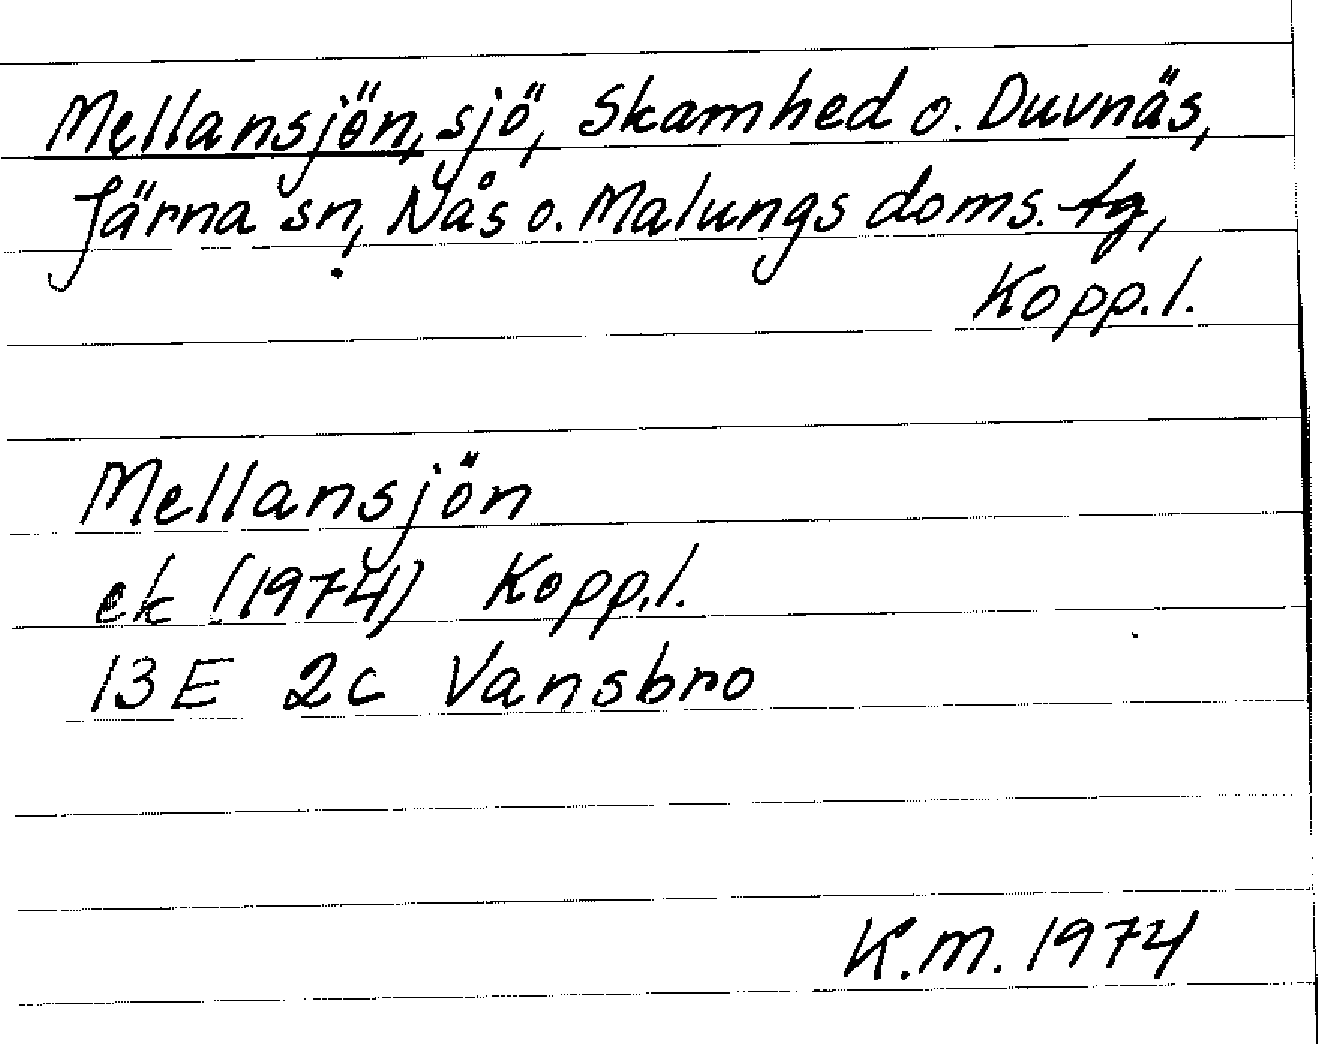 Mellansjön, sjö, Skamhed o. Duvnäs,
Järna sn, Nås o. Malungs doms. tg,
Kopp.l.
Mellansjön
ek (1974) Kopp.l.
13E 2c Vansbro
K.M. 1974